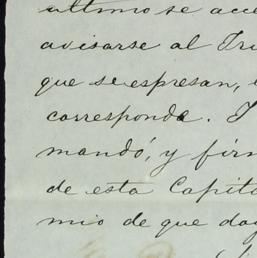 ultimo se acce
avisarse al Tri
que se espresan,
corresponde. I
mandó, y firm
de esta Capita
mio de que doy